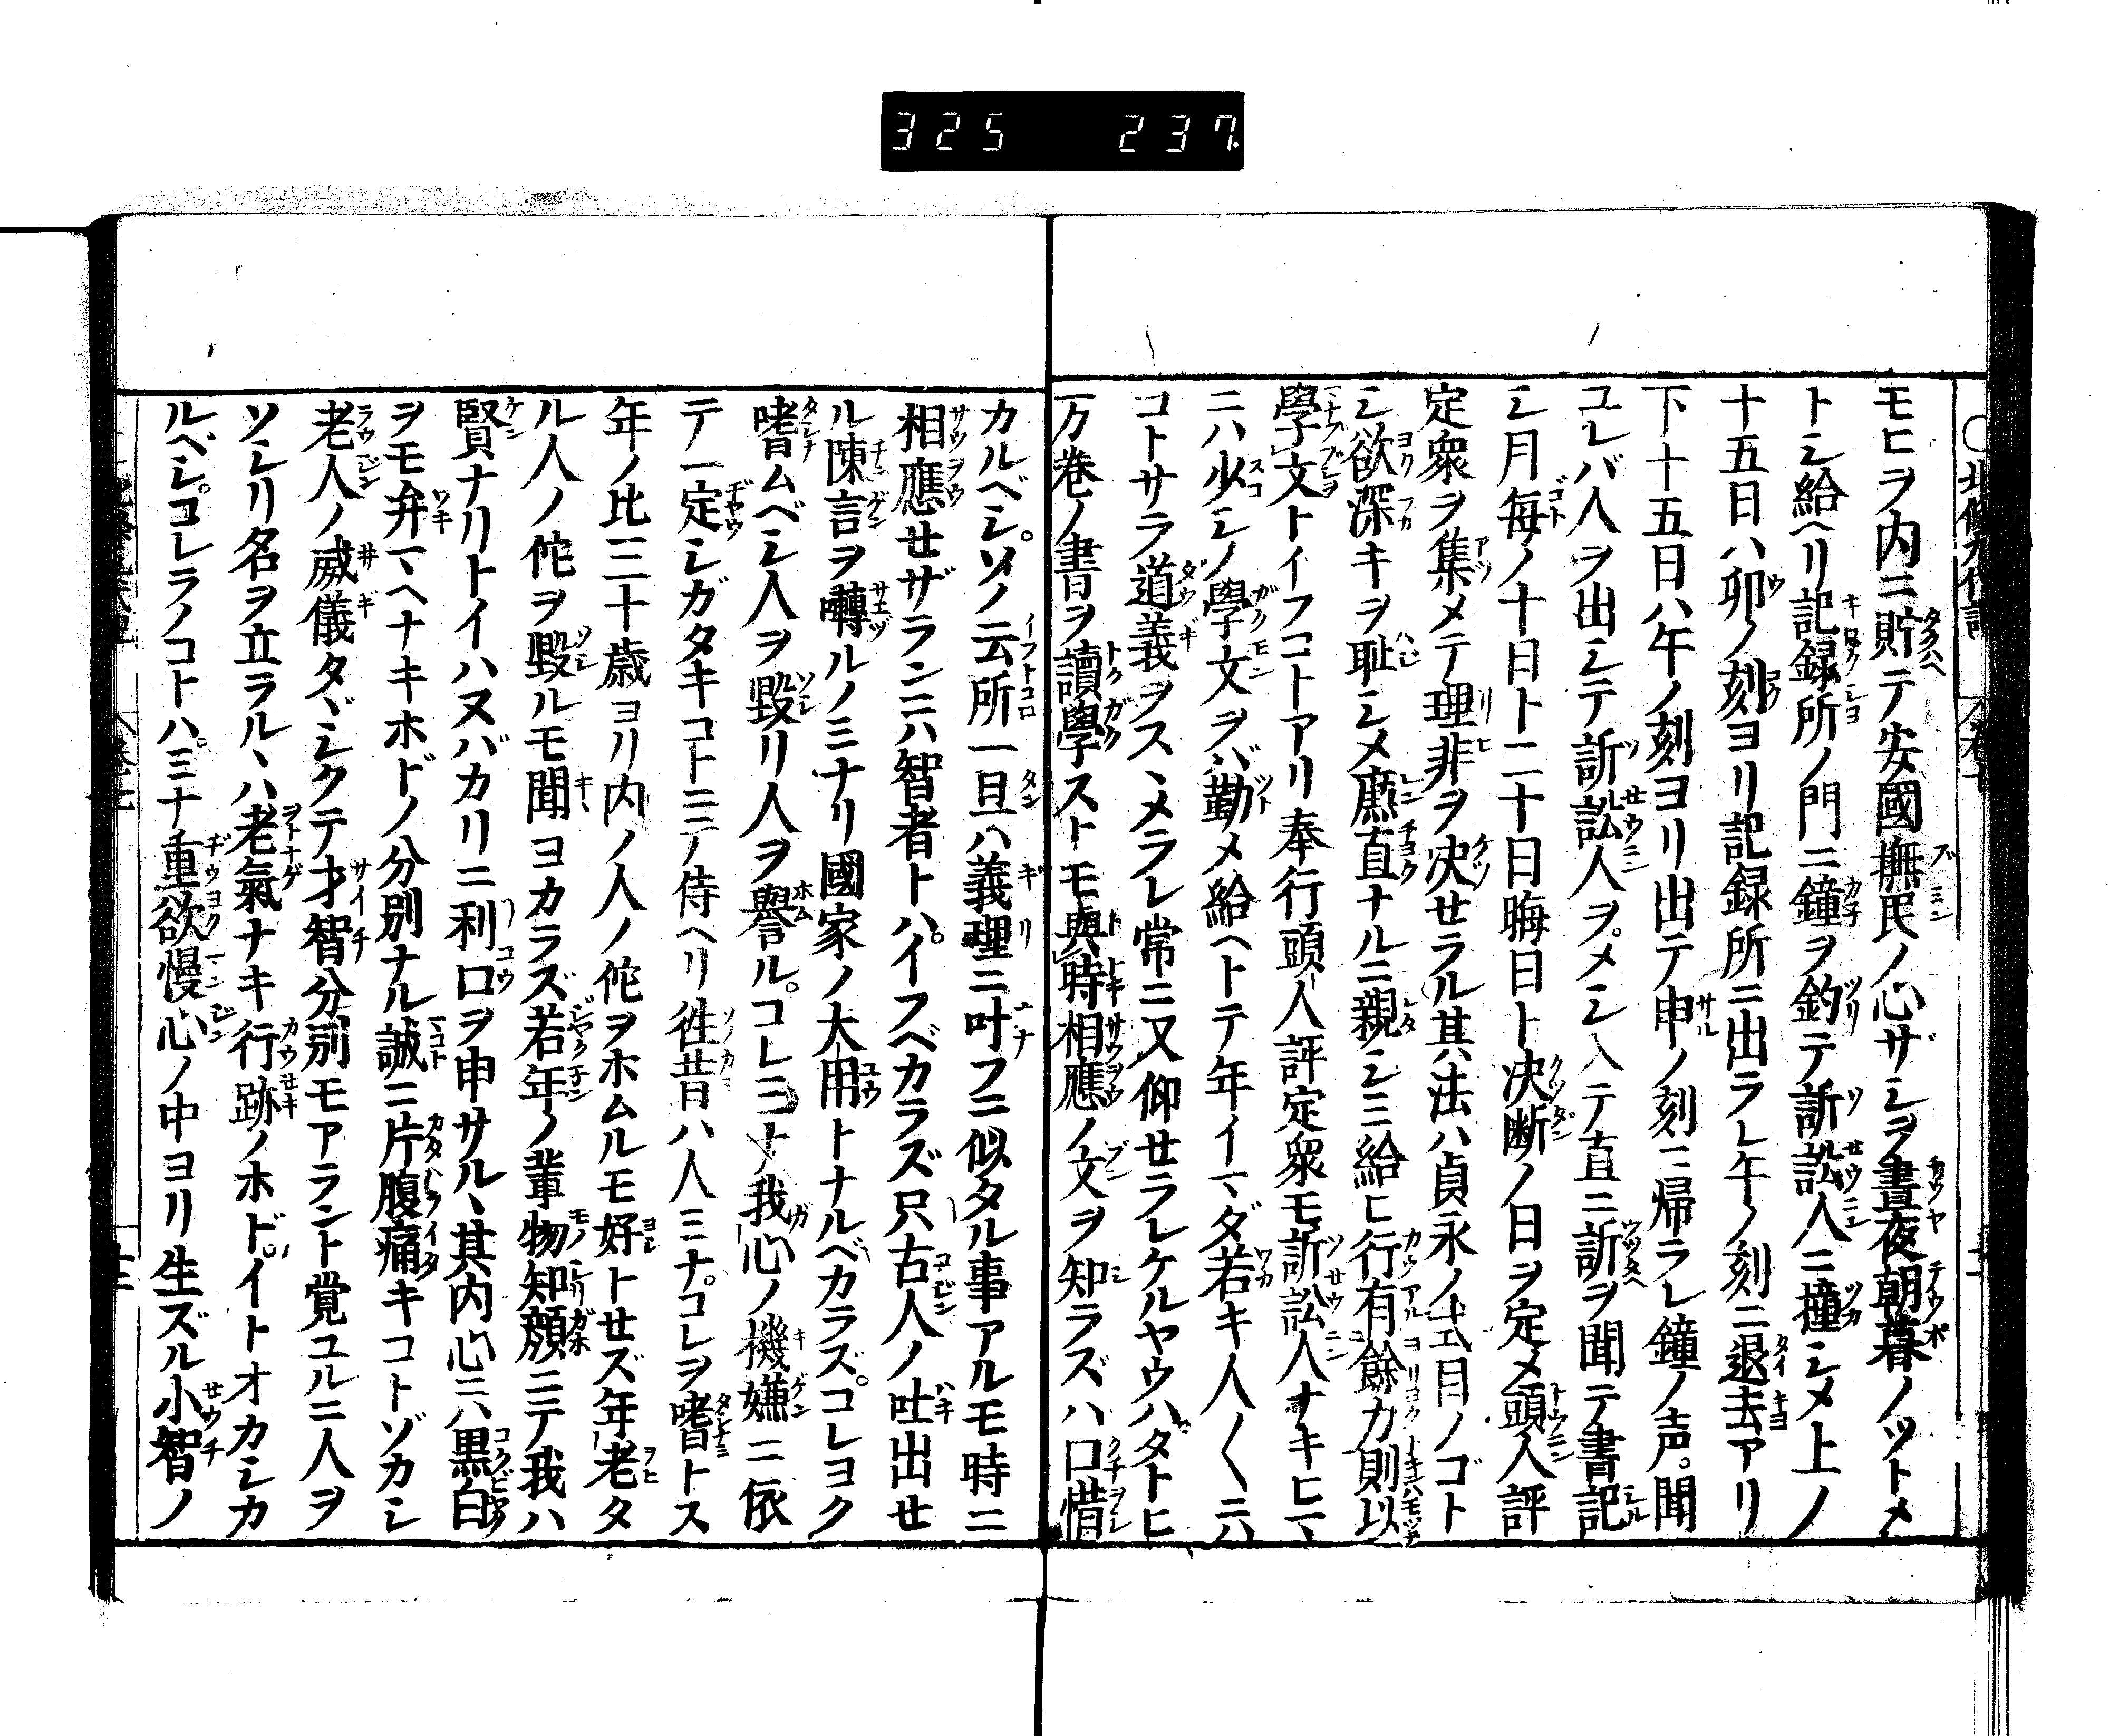 325 237
モヒヲ内ニ貯テ安國撫民ノ心ザシヲ晝夜朝暮ノツトメ
トシ給ヘリ記録所ノ門ニ鐘ヲ釣テ訴訟人ニ撞シメ上ノ
十五日ハ卯ノ刻ヨリ記録所ニ出ラレ午ノ刻ニ退去アリ
下十五日ハ午ノ刻ヨリ出テ申ノ刻ニ帰ラレ鐘ノ声聞
ユレバ人ヲ出シテ訴訟人ヲメシ入テ直ニ訴ヲ聞テ書記
シ月毎ノ十日ト二十日晦日ト决断ノ日ヲ定メ頭人評
定衆ヲ集メテ理非ヲ决せラル其法ハ貞永ノ式目ノゴト
シ欲深キヲ耻シメ廉直ナルニ親シミ給ヒ行有餘力則以
學文トイフコトアリ奉行頭人評定衆モ訴訟人ナキヒマ
ニハ少シノ學文ヲバ勤メ給ヘトテ年イマダ若キ人〱ニハ
コトサラ道義ヲスヽメラレ常ニ又仰せラレケルヤウハタトヒ
万巻ノ書ヲ讀學ストモ與時相應ノ文ヲ知ラズハ口惜
カルベシソノ云所一旦ハ義理ニ叶フニ似タル事アルモ時ニ
相應せザランニハ智者トハイフベカラズ只古人ノ吐出せ
ル陳言ヲ囀ルノミナリ國家ノ大用トナルベカラズコレヨク
嗜ムベシ人ヲ毀リ人ヲ譽ルコレミナ我心ノ機嫌ニ依
テ一定シガタキコトニテ侍ヘリ徃昔ハ人ミナコレヲ嗜トス
年ノ比三十歳ヨリ内ノ人ノ佗ヲホムルモ好トせズ年老タ
ル人ノ佗ヲ毀ルモ聞ヨカラズ若年ノ輩物知顔ニテ我ハ
賢ナリトイハヌバカリニ利口ヲ申サルヽ其内心ニハ黒白
ヲモ弁マヘナキホドノ分別ナル誠ニ片腹痛キコトゾカシ
老人ノ威儀タヾシクテ才智分別モアラント覚ユルニ人ヲ
ソシリ名ヲ立ラルヽハ老氣ナキ行跡ノホドイトオカシカ
ルベシコレラノコトハミナ重欲慢心ノ中ヨリ生ズル小智ノ